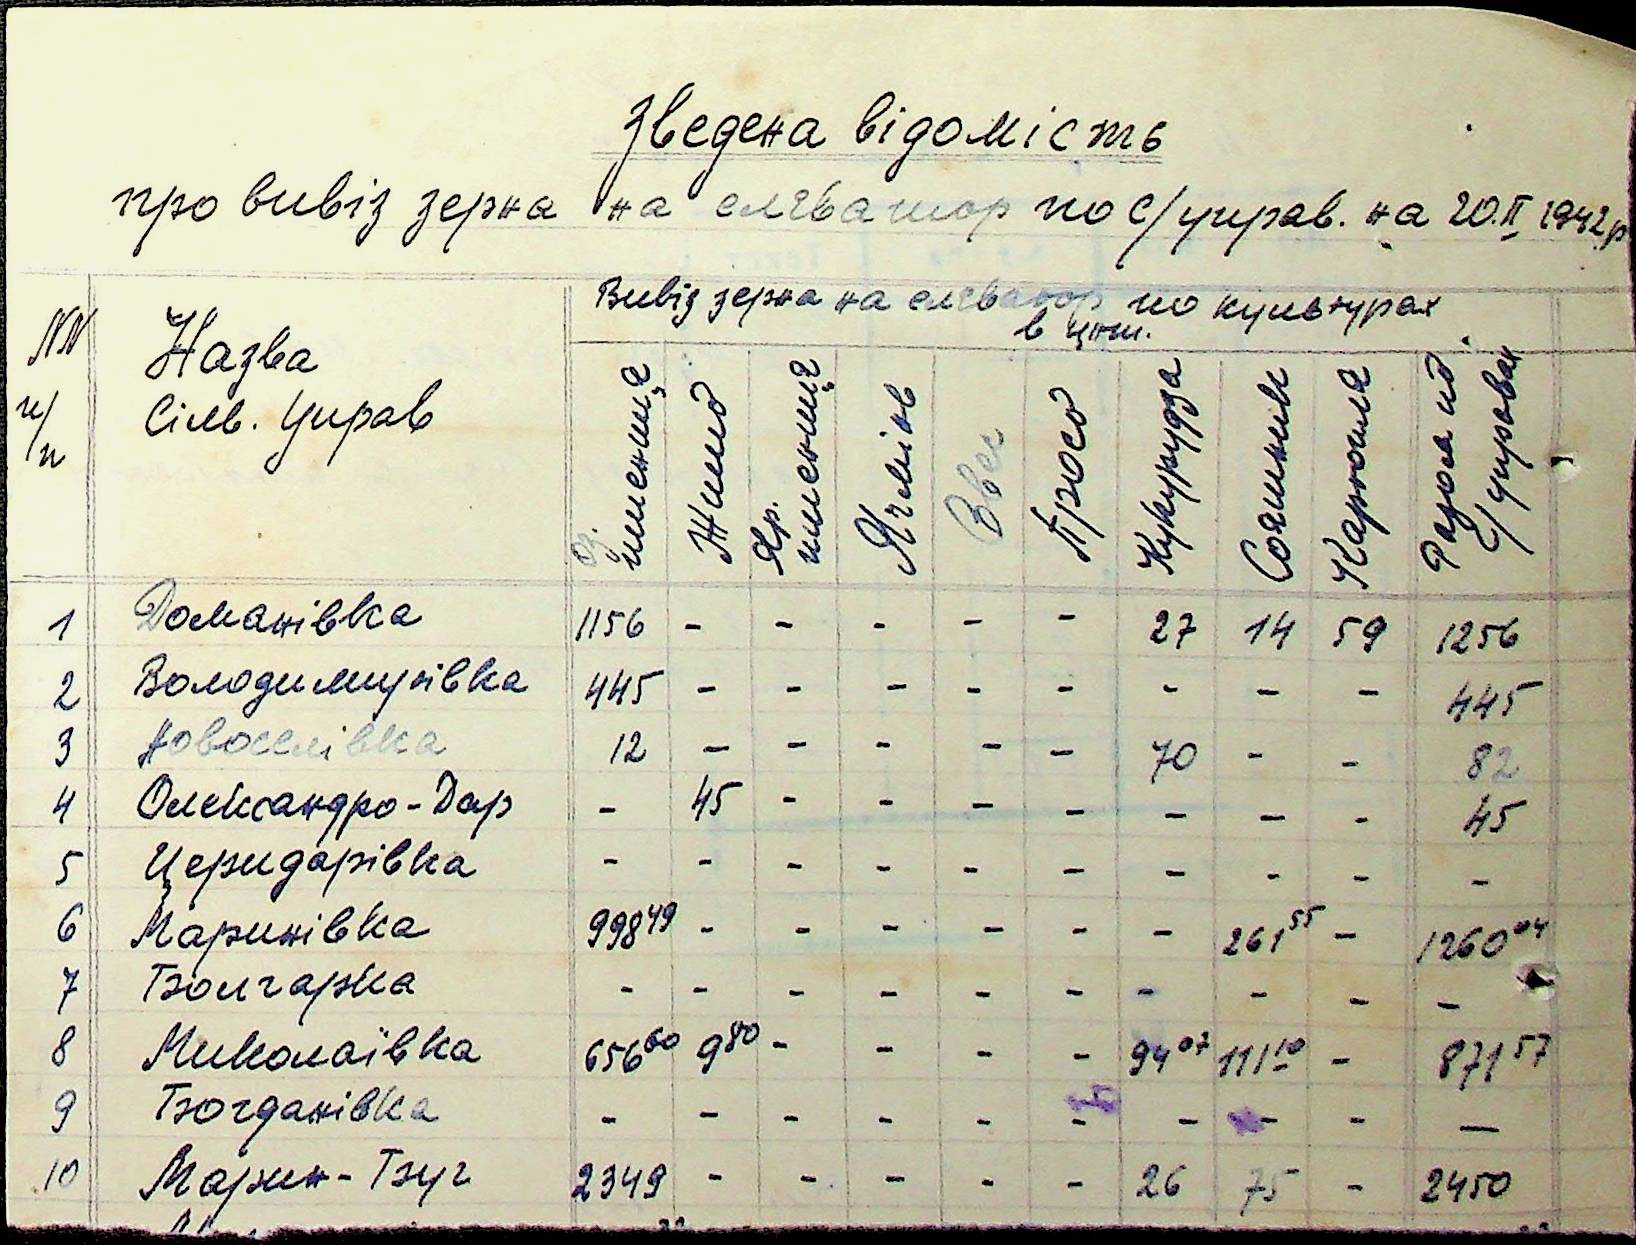 Зведена відомість
про вивіз зерна на елєватор по с/управ. на 20.II 1942 р
NN п/п
Назва Сілв. Управ
Вивіз зерна на елєватор по культурах в цнт.
Оз. пшениця
Жито
Яр. пшениця
Ячмінь
Овес
Просо
Кукурудза
Соняшник
Картопля
Разом по с/управах
1 Доманівка 1156 - - - - - 27 14 59 1256
2 Володимирівка 445 - - - - - - - - 445
3 Новоселівка 12 - - - - - 70 - - 82
4 Олександро-Дар - 45 - - - - - - - 45
5 Церидарівка - - - - - - - - - -
6 Маринівка 998 49 - - - - - - 261 55 - 1260 04
7 Болгарка - - - - - - - - - -
8 Миколаївка 656 60 9 80 - - - - 94 07 111 10 - 871 57
9 Богданівка - - - - - - - - - -
10 Марин-Буг 2349 - - - - - 26 75 - 2450